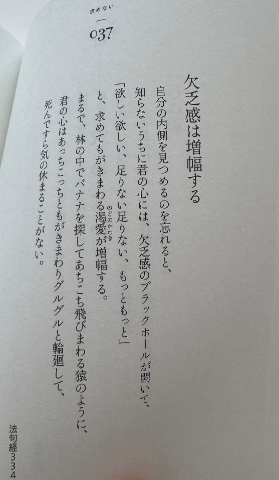 求めない
037
欠乏感は増幅する
自分の内側を見つめるのを忘れると、
知らないうちに君の心には、欠乏感のブラックホールが開いて、
「欲しい欲しい、足りない足りない、もっともっと」
と、求めてもがきまわる渇愛が増幅する。
のどのかわき
まるで、林の中でバナナを探してあちこち飛びまわる猿のように、
君の心はあっちこっちともがきまわりグルグルと輪廻して、
死んですら気の休まることがない。
法句経334